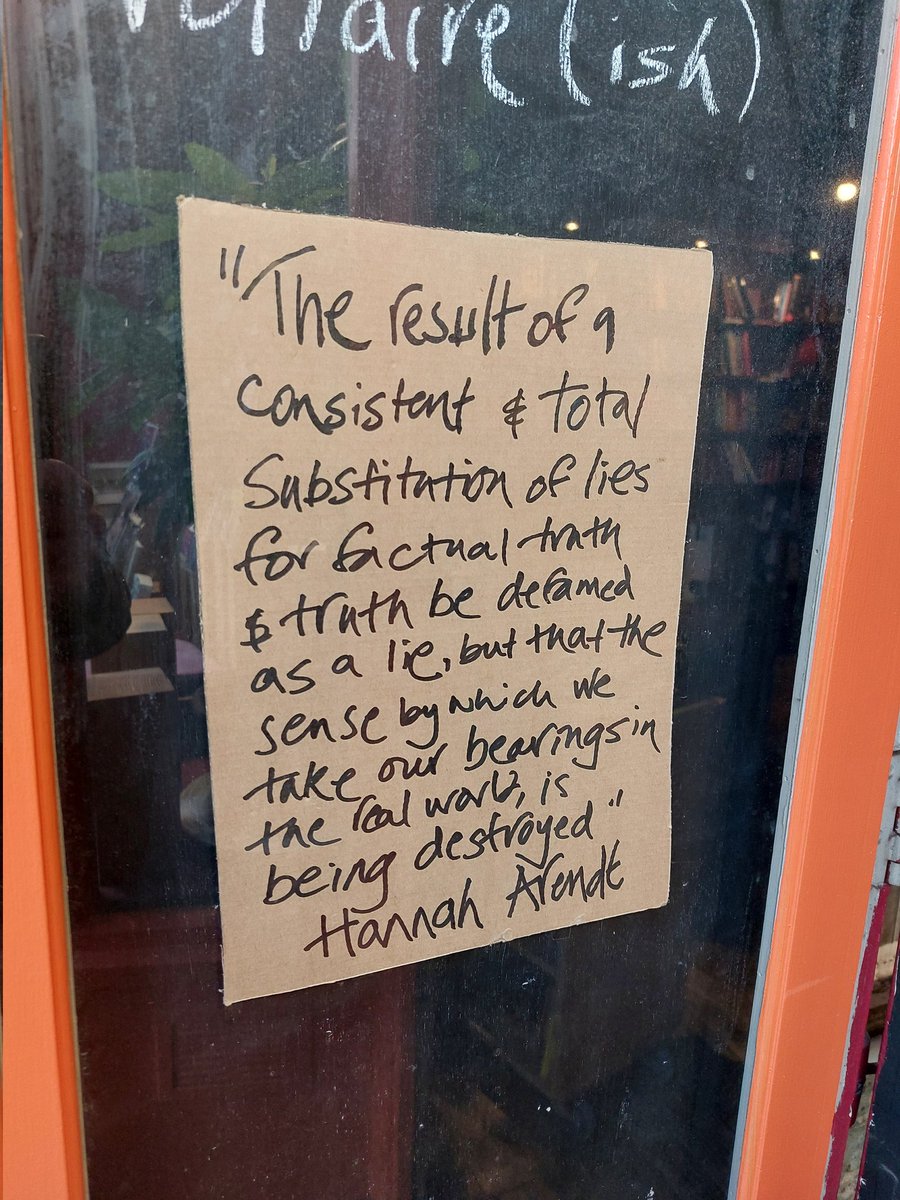 Voltaire (ish)
"The result of a
consistent & total
Substitution of lies
for factual truth
& truth be defamed
as a lie, but that the
sense by which we
take our bearings in
the real world, is
being destroyed"
Hannah Arendt